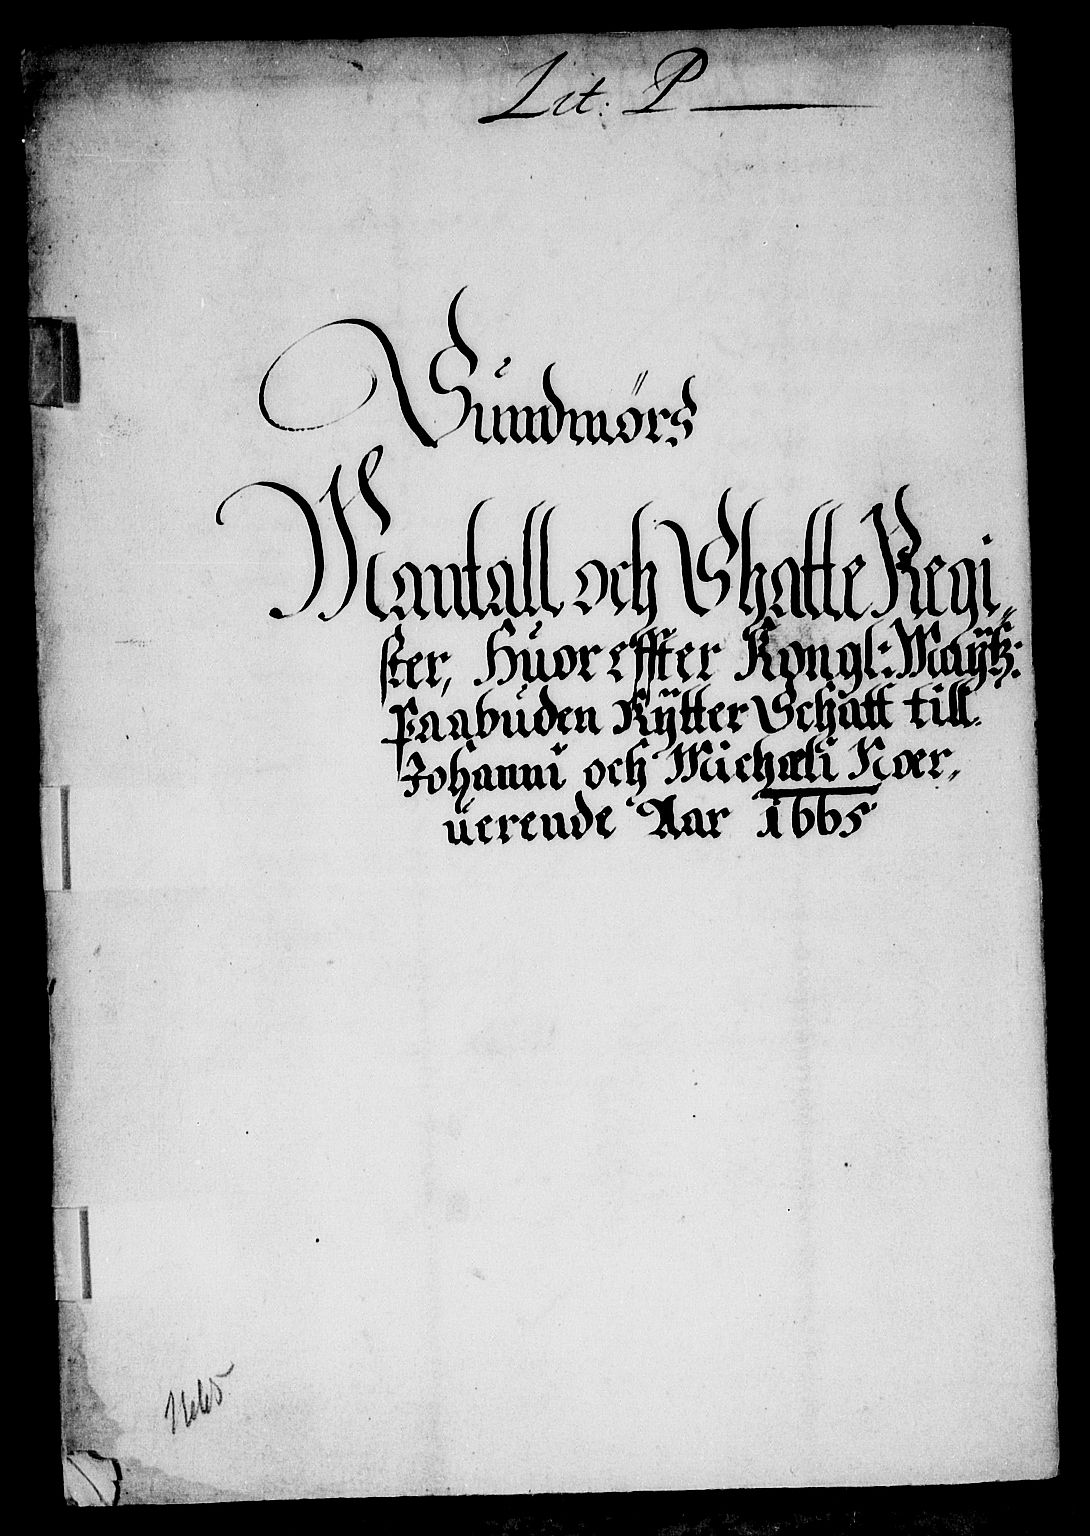 Lit: P
Sundmørs
Mantall och Skatte Regi„
ster, Huor effter Kongl: Maÿtz:
Paabuden Rÿtter Schatt till
Johanni och Michæli Nær„
uerende Aar 1665
1665